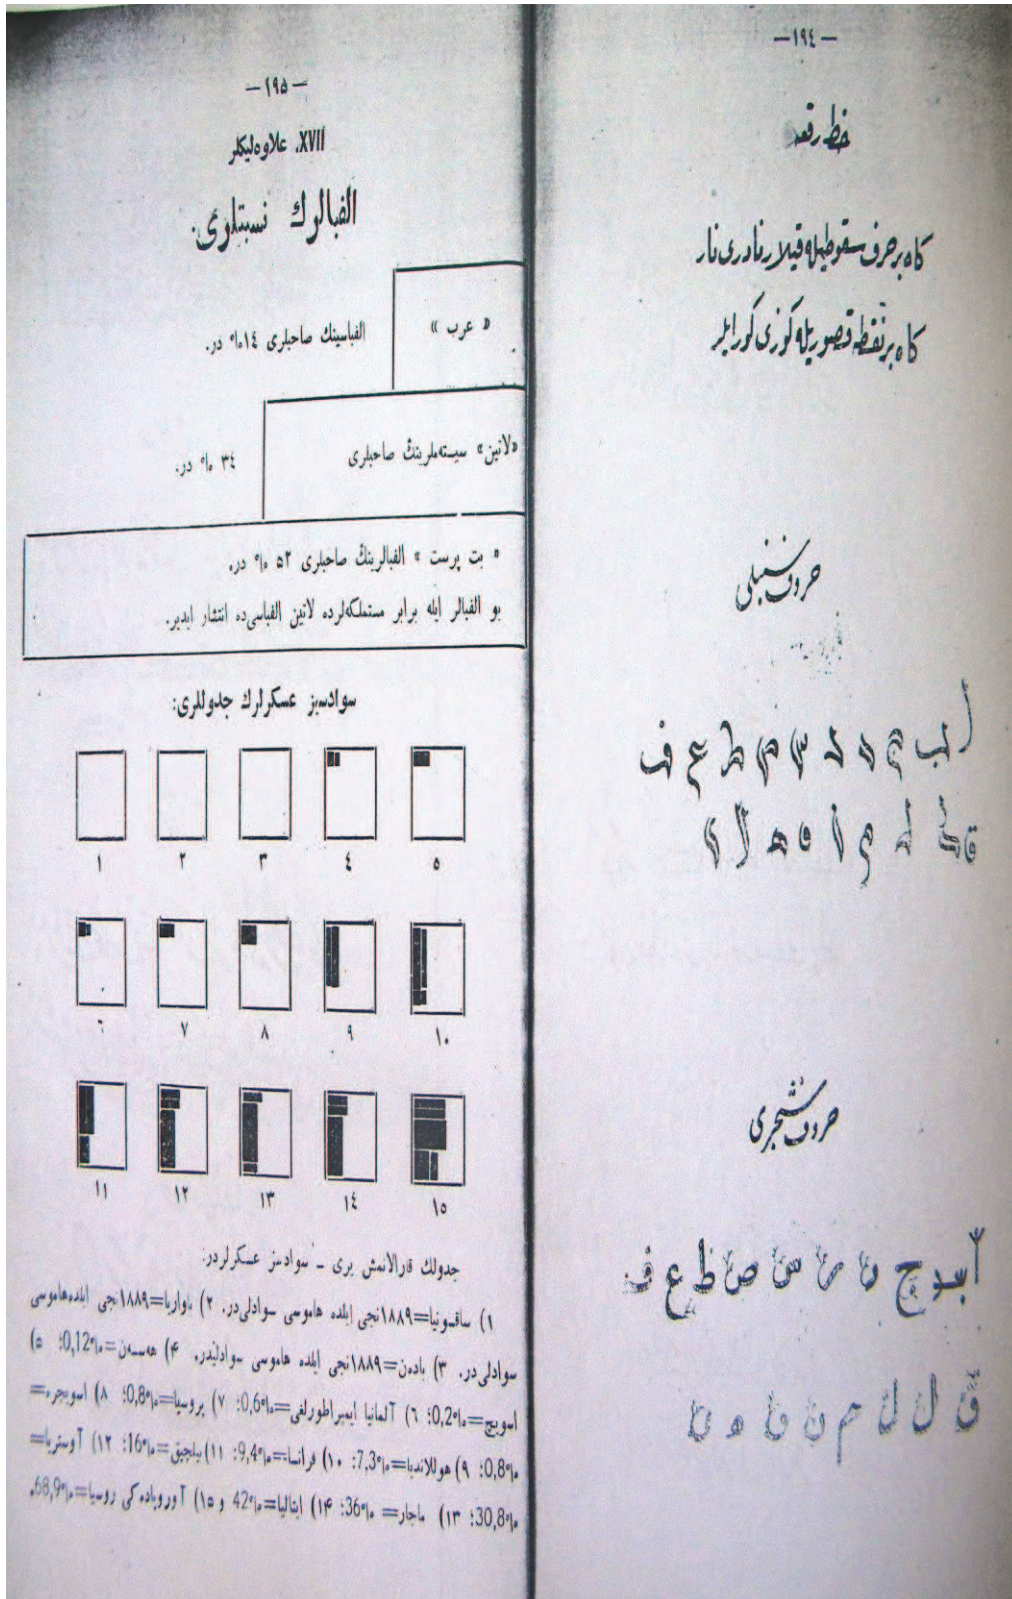 —١٩٤—
خط رقعه
كاه بر حرف سقوطيله قيلار نادری نار
كاه بر نقطه قصوریله گوزی كور ایلر
حروف سنبلی
حروف شجری
—١٩۵—
XVII. علاوه‌لیكلر
الفبالرك نسبتلری.
« عرب »
الفباسینك صاحبلری ١٤% در.
«لاتین» سیسته‌ملرینڭ صاحبلری
٣٤ % در.
« بت پرست » الفبالرینڭ صاحبلری ۵۲ % در.
بو الفبالر ایله برابر مستملكه‌لرده لاتین الفباسی‌ده انتشار ایدیر.
سوادسیز عسكرلرك جدوللری:
١ ٢ ٣ ٤ ۵
٦ ٧ ٨ ٩ ١٠
١١ ١٢ ١٣ ١٤ ١۵
جدولك قارالانمش یری – سوادسز عسكرلردر:
١) ساقسونیا=١٨٨٩نجی ایلده هاموسی سوادلی‌در. ٢) باواریا=١٨٨٩نجی ایلده‌هاموسی
سوادلی در. ٣) باده‌ن=١٨٨٩نجی ایلده هاموسی سوادلیدر. ۴) هه‌سسه‌ن=0,12%؛ ۵)
اسویج=0,2%؛ ٦) آلمانیا ایمپراطورلغی=0,6%؛ ٧) پروسیا=0,8%؛ ٨) اسویچره=
0,8%؛ ٩) هوللاندیا=7,3%؛ ١٠) فرانسا=9,4%؛ ١١) بیلجیق=16%؛ ١٢) آوستریا=
30,8%؛ ١٣) ماجار= 36%؛ ١۴) ایتالیا=42% و ١۵) آوروپاده‌كی روسیا=68,9%.